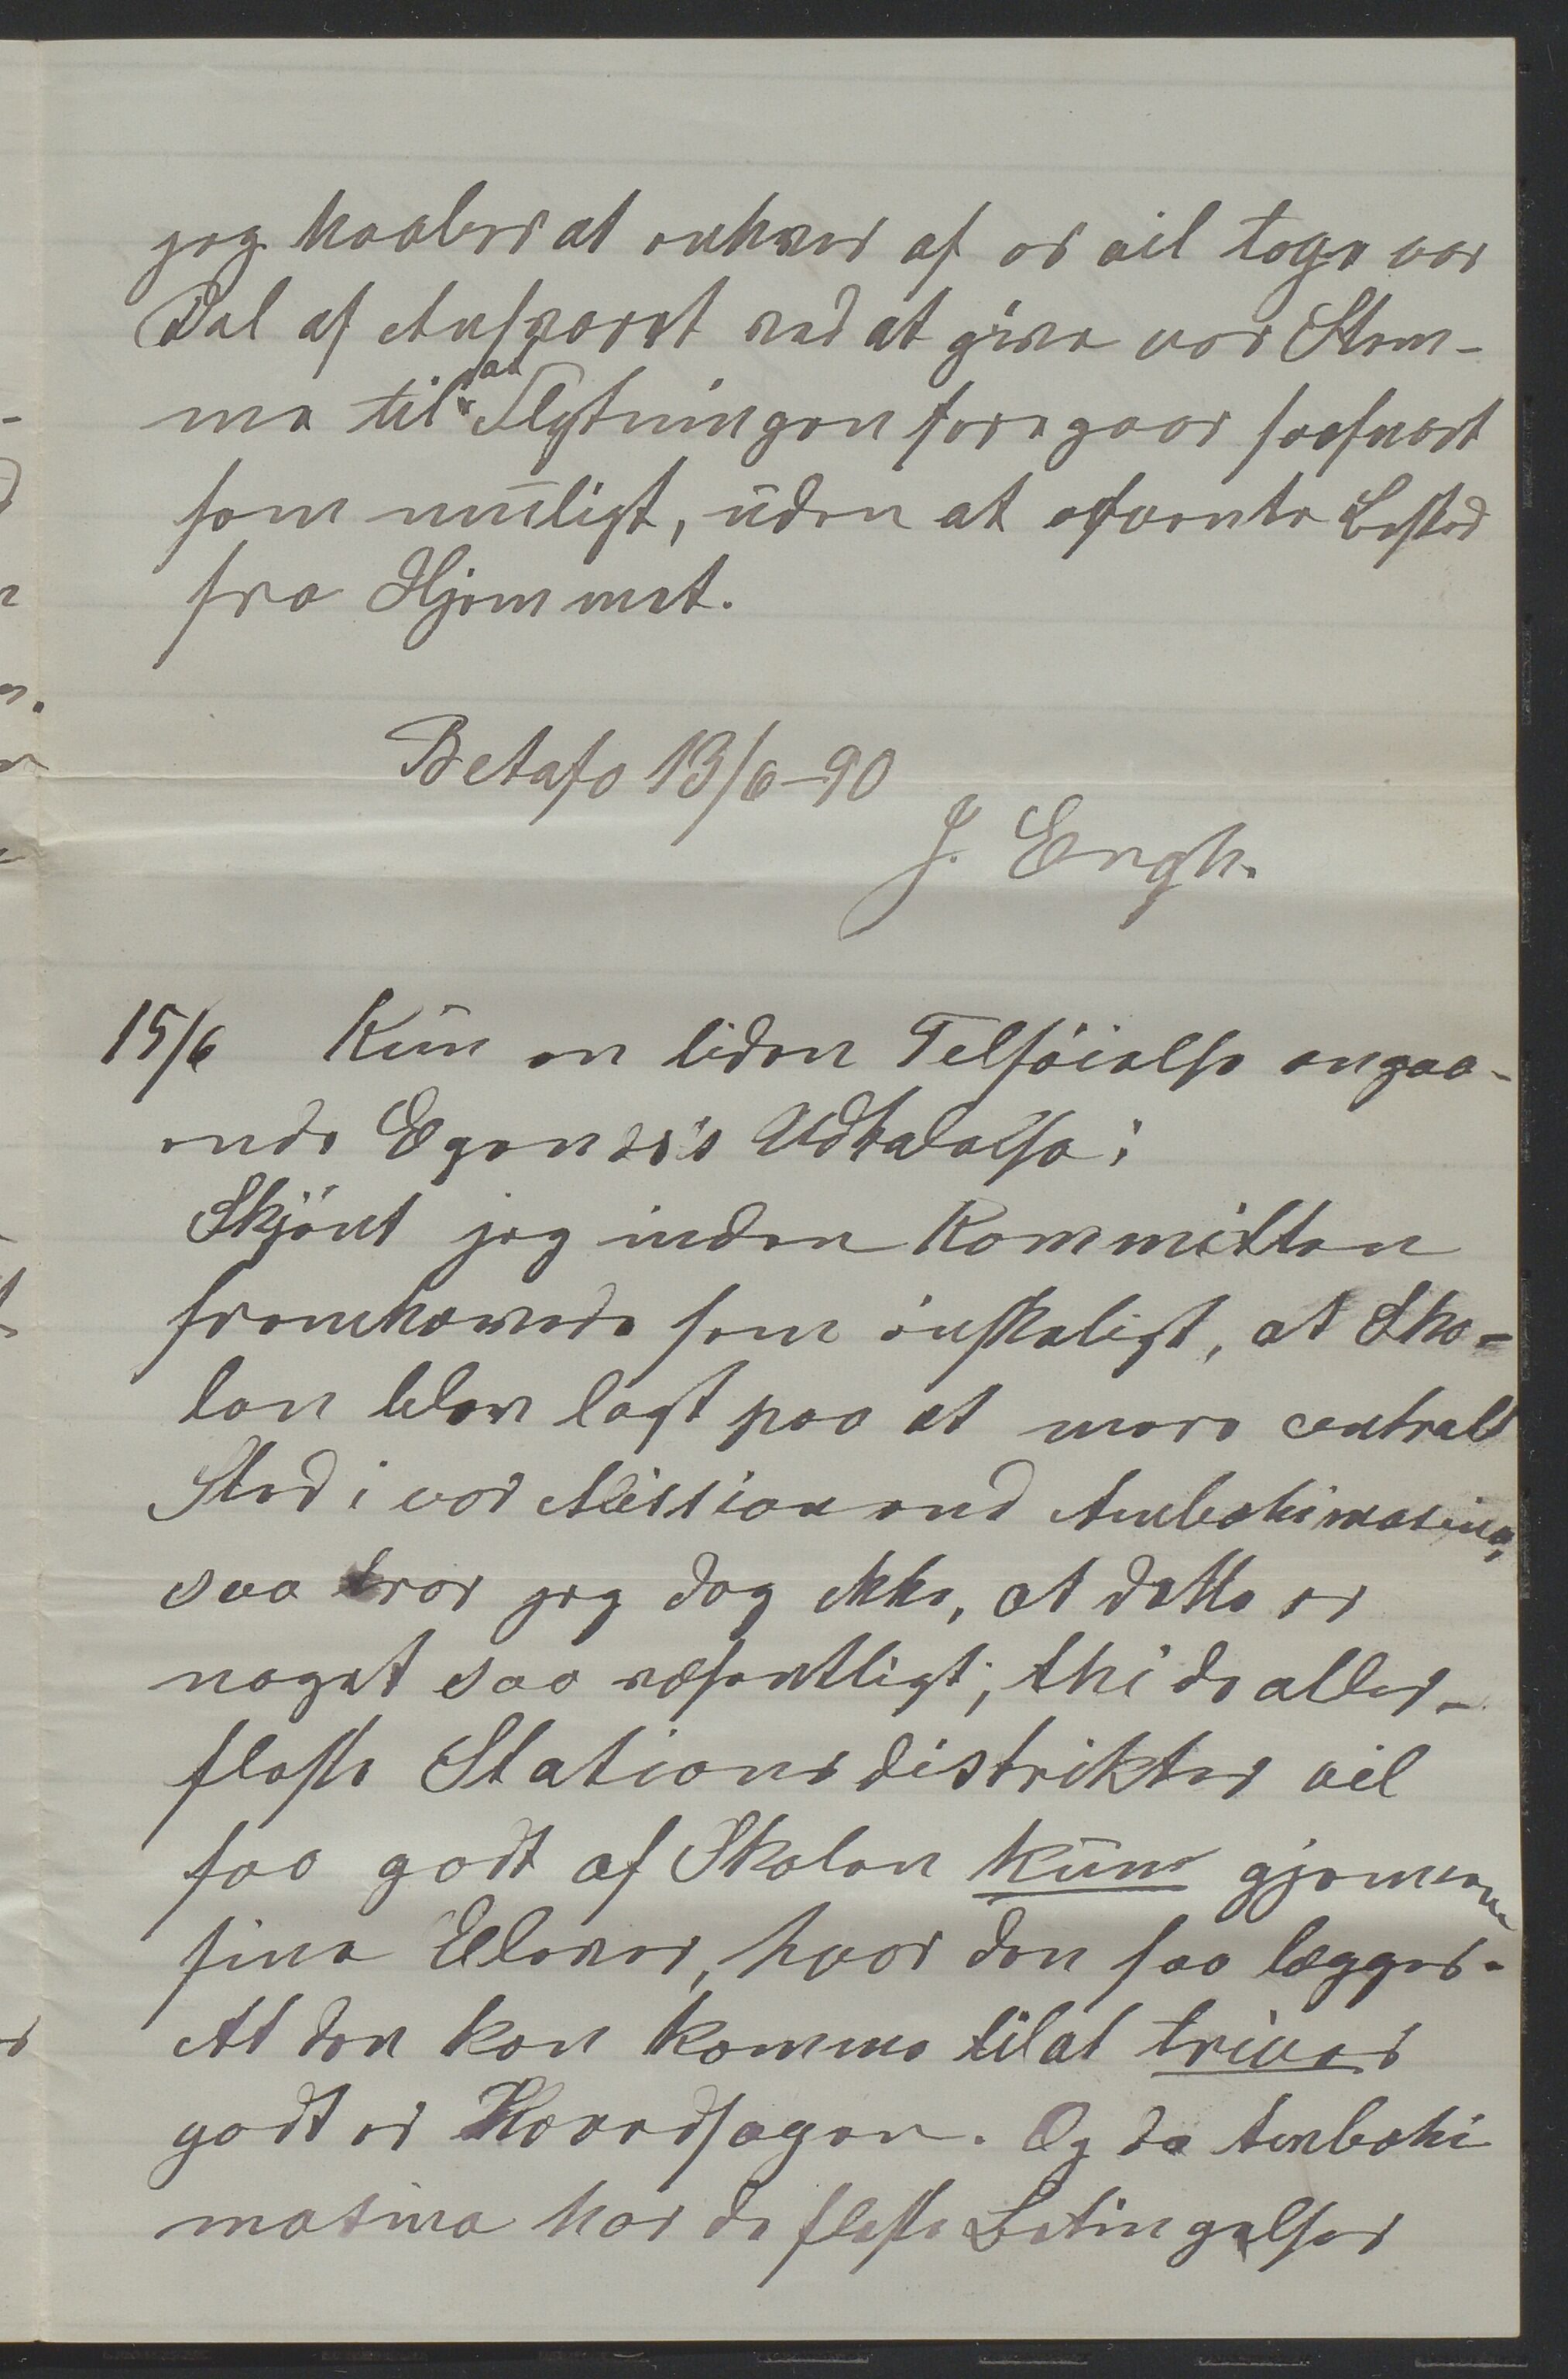 jeg haaber at enhver af os vil tage vor
Del af Ansvaret ved at give vor Stem-
me til at Flytningen foregaar saasnart
som muligt, uden at afvente Besked
fra Hjemmet.
Betafo 13/6-90
J. Engh.
15/6 Kun en liden Tilföielse angaa-
ende Egenæs's Udtalelse:
Skjönt jeg inden Kommitten
fremhævede som önskeligt, at Sko-
len blev lagt paa et mere centralt
Sted i vor Mission end Ambohimasina,
saa tror jeg dog ikke, at dette er
noget saa væsentligt; thi de aller-
fleste Stationsdistrikter vil
faa godt af Skolen kun gjennem
sine Elever, hvor den saa lægges.
At den kan komme til at trives
godt er Hovedsagen. Og da Ambohi
masina har de fleste Betingelser